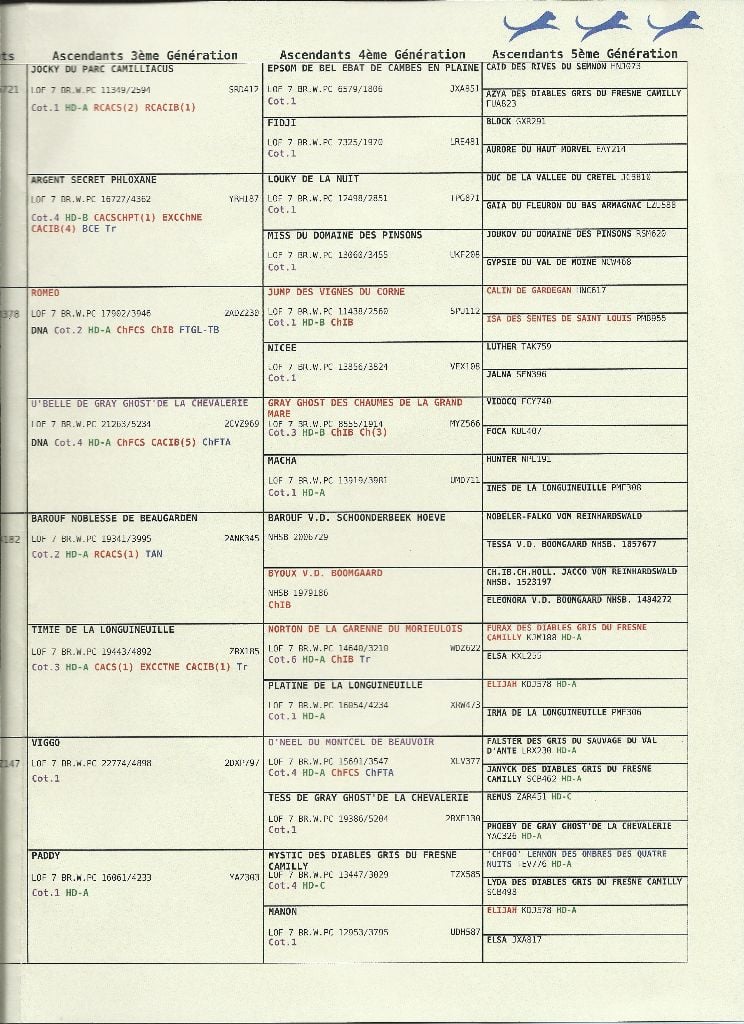 ts
Ascendants 3ème Génération
Ascendants 4ème Génération
Ascendants 5ème Génération
JOCKY DU PARC CAMILLIACUS
LOF 7 BR.W.PC 11349/2594
Cot.1 HD-A RCACS(2) RCACIB(1)
ARGENT SECRET PHLOXANE
LOF 7 BR.W.PC 16727/4362 YRH187
Cot.4 HD-B CACSCHPT(1) EXCChNE
CACIB(4) BCE Tr
378
ROMEO
LOF 7 BR.W.PC 17902/3946 2ADZ230
DNA Cot.2 HD-A ChFCS ChIB FTGL-TB
U'BELLE DE GRAY GHOST'DE LA CHEVALERIE
LOF 7 BR.W.PC 21263/5234 2CVZ969
DNA Cot.4 HD-A ChFCS CACIB(5) ChFTA
182
BAROUF NOBLESSE DE BEAUGARDEN
LOF 7 BR.W.PC 19341/3995 2ANK345
Cot.2 HD-A RCACS(1) TAN
TIMIE DE LA LONGUINEUILLE
LOF 7 BR.W.PC 19443/4892 ZRX185
Cot.3 HD-A CACS(1) EXCCTNE CACIB(1) Tr
VIGGO
LOF 7 BR.W.PC 22774/4898
Cot.1
PADDY
LOF 7 BR.W.PC 16061/4233 YAZ303
Cot.1 HD-A
EPSOM DE BEL EBAT DE CAMBES EN PLAINE
LOF 7 BR.W.PC 6579/1806 JXA951
Cot.1
FIDJI
LOF 7 BR.W.PC 7325/1970 LRE481
Cot.1
LOUKY DE LA NUIT
LOF 7 BR.W.PC 12498/2851 TPG871
Cot.1
MISS DU DOMAINE DES PINSONS
LOF 7 BR.W.PC 13060/3455 UKF208
Cot.1
JUMP DES VIGNES DU CORNE
LOF 7 BR.W.PC 11438/2560 SPU112
Cot.1 HD-B ChIB
NICEE
LOF 7 BR.W.PC 13856/3824 VFX108
Cot.1
GRAY GHOST DES CHAUMES DE LA GRAND
MARE
LOF 7 BR.W.PC 8555/1914 MYZ566
Cot.3 HD-B ChIB Ch(3)
MACHA
LOF 7 BR.W.PC 13919/3981 UMD711
Cot.1 HD-A
BAROUF V.D. SCHOONDERBEEK HOEVE
NHSB 2006729
BYOUX V.D. BOOMGAARD
NHSB 1979186
ChIB
NORTON DE LA GARENNE DU MORIEULOIS
LOF 7 BR.W.PC 14640/3210 WDZ622
Cot.6 HD-A ChIB Tr
PLATINE DE LA LONGUINEUILLE
LOF 7 BR.W.PC 16054/4234 XRW473
Cot.1 HD-A
O'NEEL DU MONTCEL DE BEAUVOIR
LOF 7 BR.W.PC 15691/3547 XLV377
Cot.4 HD-A ChFCS ChFTA
TESS DE GRAY GHOST'DE LA CHEVALERIE
LOF 7 BR.W.PC 19386/5204 2BXF130
Cot.1
MYSTIC DES DIABLES GRIS DU FRESNE
CAMILLY
LOF 7 BR.W.PC 13447/3029 TZX585
Cot.4 HD-C
MANON
LOF 7 BR.W.PC 12953/3795 UDH587
Cot.1
CAID DES RIVES DU SEMNON HNJ073
AZYA DES DIABLES GRIS DU FRESNE CAMILLY
FUA623
BLOCK GXR291
AURORE DU HAUT MORVEL EAY214
DUC DE LA VALLEE DU CRETEL JCS810
GAIA DU FLEURON DU BAS ARMAGNAC LZU588
JOUKOV DU DOMAINE DES PINSONS RSM620
GYPSIE DU VAL DE MOINE NCW468
CALIN DE GARDEGAN HNC617
ISA DES SENTES DE SAINT LOUIS PMB955
LUTHER TAK759
JALNA SFN396
VIDOCQ FCY740
FOCA KUL407
HUNTER NPL191
INES DE LA LONGUINEUILLE PMF308
NOBELER-FALKO VOM REINHARDSWALD
TESSA V.D. BOOMGAARD NHSB. 1857677
CH.IB.CH.HOLL. JACCO VOM REINHARDSWALD
NHSB. 1523197
ELEONORA V.D. BOOMGAARD NHSB. 1484272
FURAX DES DIABLES GRIS DU FRESNE
CAMILLY KJM188 HD-A
ELSA KXL255
ELIJAH KDJ578 HD-A
IRMA DE LA LONGUINEUILLE PMF306
FALSTER DES GRIS DU SAUVAGE DU VAL
D'ANTE LRX230 HD-A
JANYCK DES DIABLES GRIS DU FRESNE
CAMILLY SCB462 HD-A
REMUS ZAR451 HD-C
PHOEBY DE GRAY GHOST'DE LA CHEVALERIE
YAC326 HD-A
'CHFGO' LENNON DES OMBRES DES QUATRE
NUITS HD-A
LYDA DES DIABLES GRIS DU FRESNE CAMILLY
SCB498
ELIJAH KDJ578 HD-A
ELSA JXA817